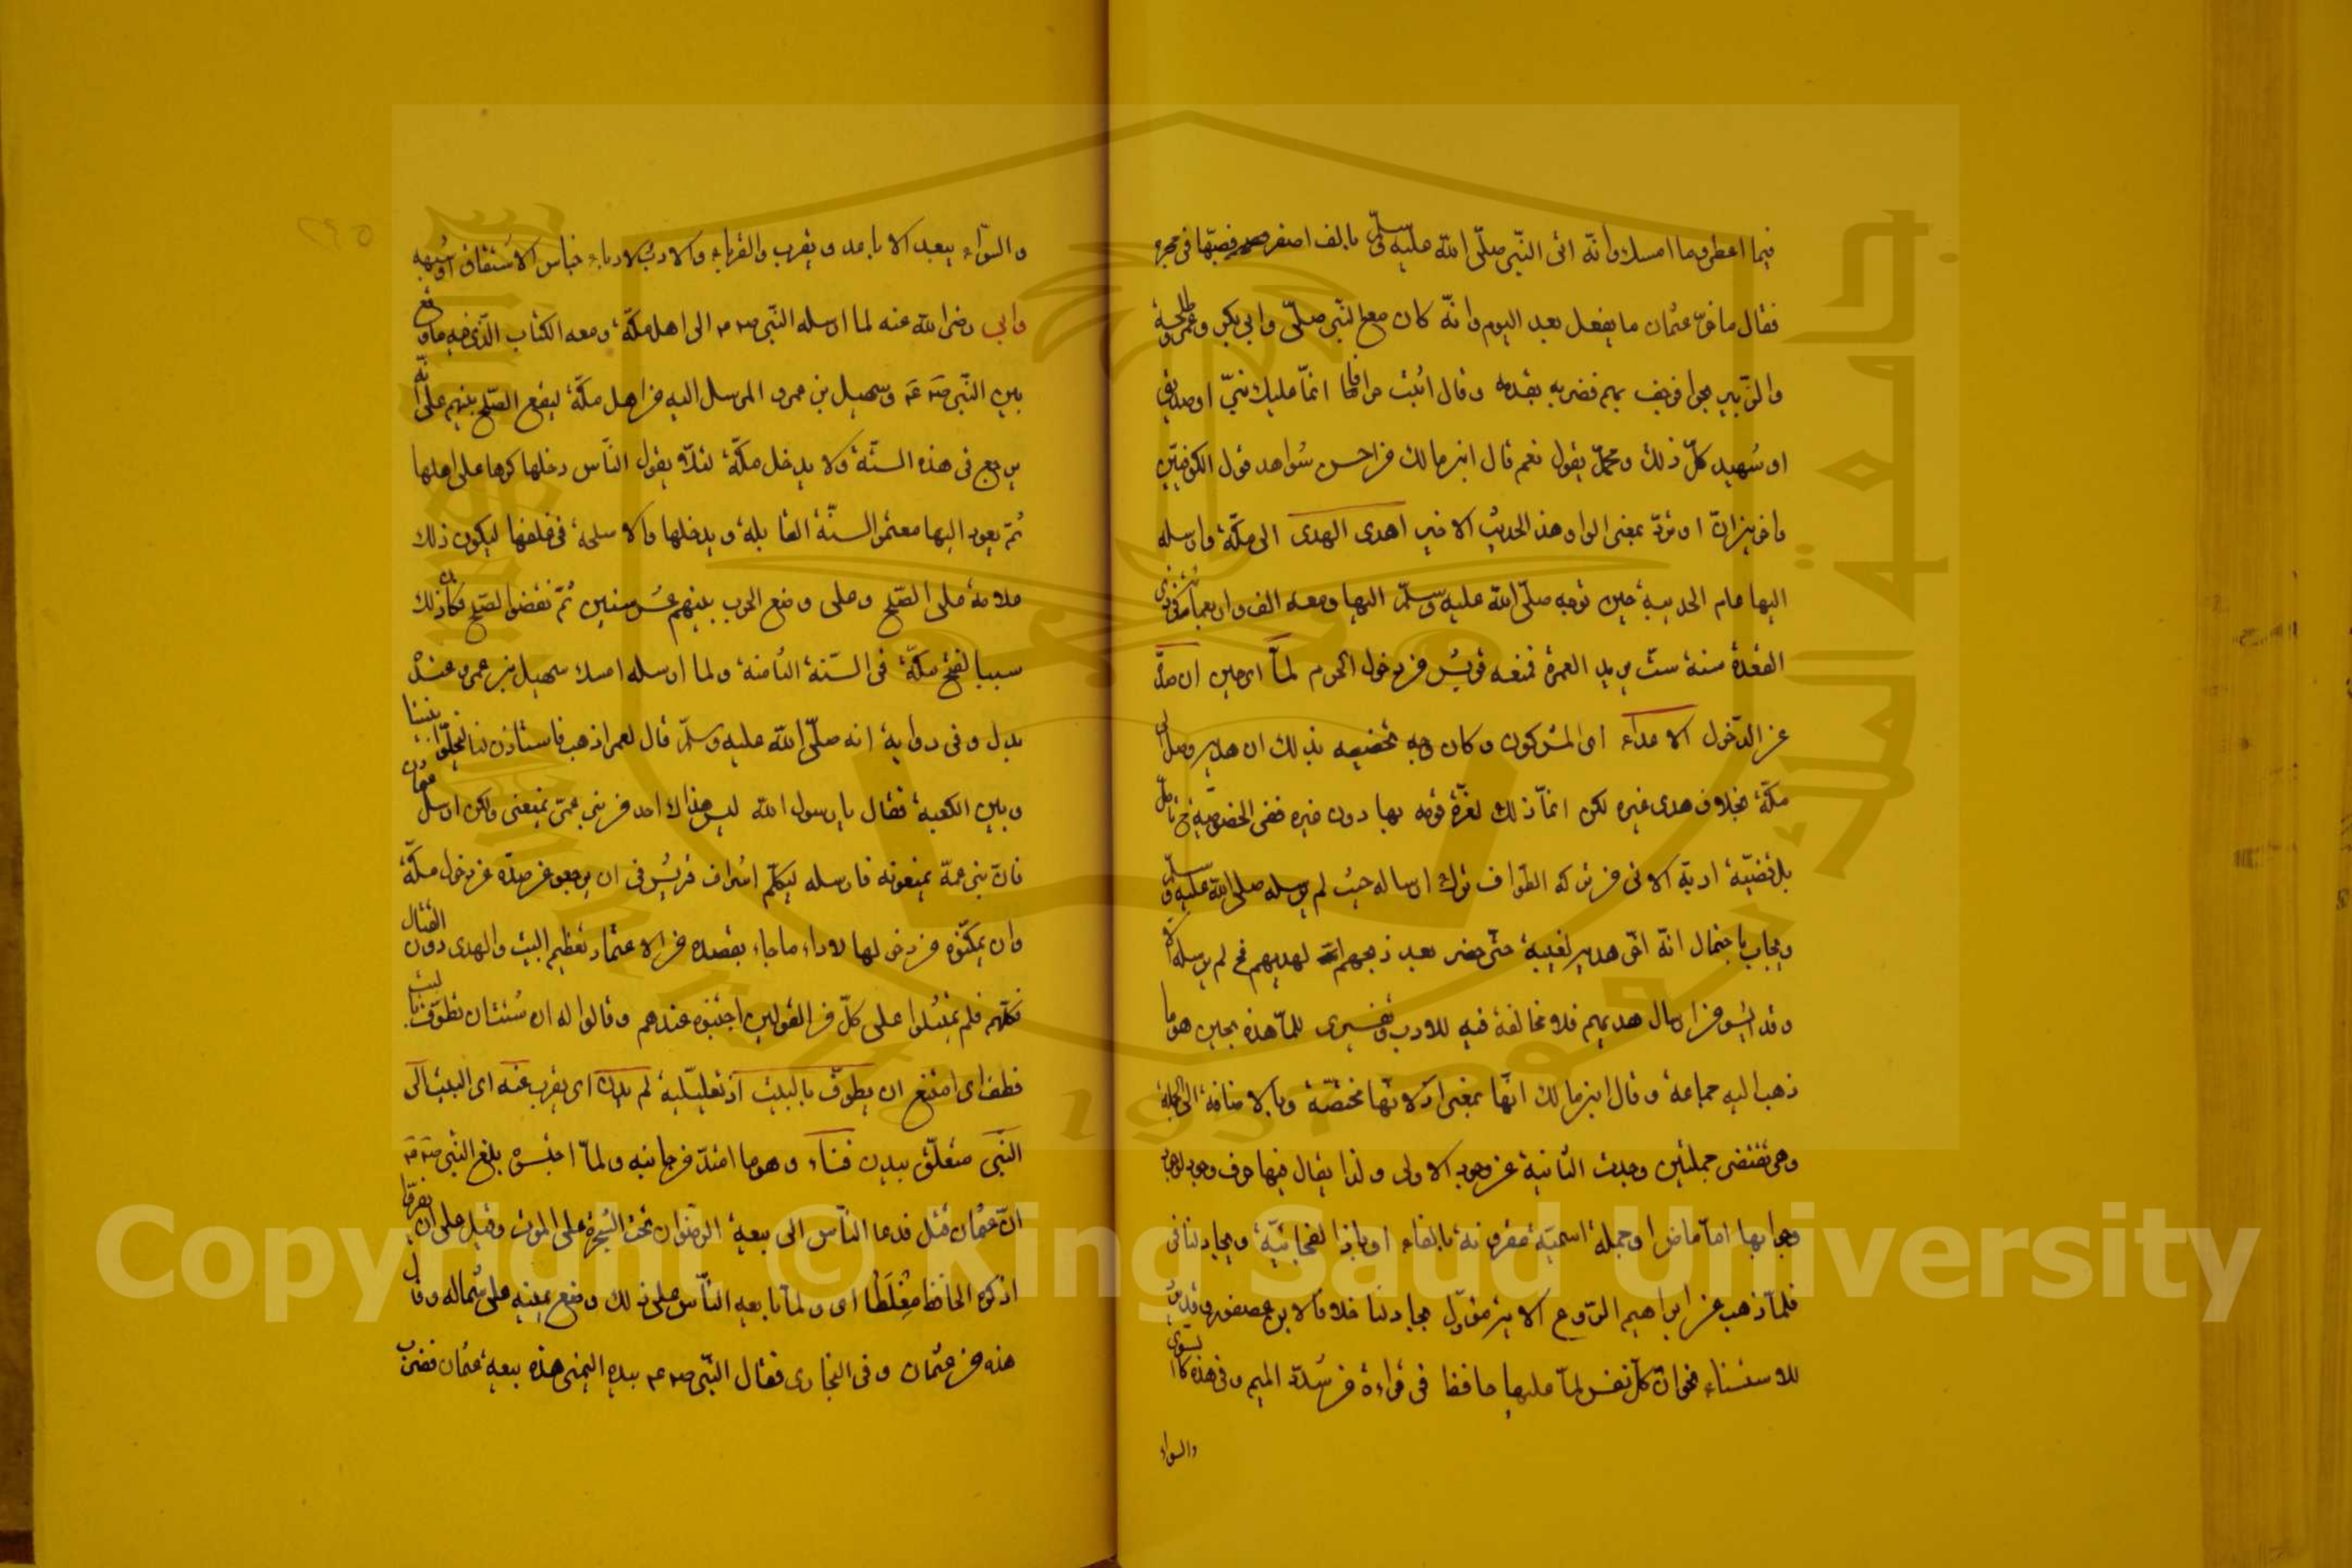 فيما اعطى وما امسك وانه اتى النبي صلى الله عليه وسلم بالف اصفر فصبها في حجره
فقال ما ضر عثمان ما يفعل بعد اليوم وانه كان مع النبي صلى وابي بكر وعمر وطلحة
والزبير بحرا فرجف بهم فضربه بقدمه وقال اثبت حرا فانما عليك نبي او صديق
او شهيد كل ذلك ومحمد يقول نعم قال ابن مالك من احسن شواهد قول الكوفيين
والاخفش ان او ترد بمعنى الواو هذا الحديث الاخير اهدى الهدى الى مكة وارسله
اليها عام الحديبية حين توجه صلى الله عليه وسلم اليها ومعه الف واربعمائة في ذي
القعدة سنة ست يريد العمرة فمنعه قريش من دخول الحرم لما اي حين ان صد
عن الدخول الاعداء اي المشركون وكان وجه تخصيصه بذلك ان هديه وصل الى
مكة بخلاف هدى غيره لكن انما ذلك لعزة قومه بها دون غيره ففي الخصوصية ح تأمل
بل قضية ادبه الاتي من تركه الطواف ترك ارساله حيث لم يرسله صلى الله عليه وسلم
ويجاب باحتمال انه اخر هديه لغيبة حتى حضر بعد ذبحهم لهديهم فح لم يرسله الا
وقد ايسو من ارسال هديهم فلا مخالفة فيه للادب وتفسيري للما هذه بحين هو ما
ذهب اليه جماعة وقال ابن مالك انها بمعنى اذ لانها مختصة وبالاضافة الى الجملة
وهي تقتضي جملتين وجدت الثانية عند وجود الاولى ولذا يقال فيها حرف وجود لوجود
وجوابها اما ماض او جملة اسمية مقرونة بالفاء او باذا الفجائية ويجادلنا في
فلما ذهب عن ابراهيم الروع الاية مؤول بجادلنا خلافا لابن عصفور وقد يرد
للاستثناء نحو ان كل نفس لما عليها حافظ في قراءة من شدد الميم وفي هذه كا
والسواء
والسواء يبعد الاباعد ويقرب والقرباء والادب الادباء جناس الاشتقاق او شبهه
وابى رضى الله عنه لما ارسله النبي صم الى اهل مكة ومعه الكتاب الذي فيه ما وقع
بين النبي صم وسهيل بن عمرو المرسل اليه من اهل مكة ليقع الصلح بينهم على انه
يرجع في هذه السنة ولا يدخل مكة لئلا يقول الناس دخلها كرها على اهلها
ثم يعود اليها معتمرا السنة القابلة ويدخلها والاسلحة في غلفها ليكون ذلك
علامة على الصلح وعلى وضع الحرب بينهم عشر سنين ثم نقضوا الصلح فكان ذلك
سببا لفتح مكة في السنة الثامنة ولما ارسله امسك سهيل بن عمرو عنده
بدل وفي رواية انه صلى الله عليه وسلم قال لعمر اذهب فاستأذن لنا ليخلوا بيننا
وبين الكعبة فقال يا رسول الله ليس هناك احد من بني عمي يمنعني ولكن ارسل عثمان
فان بني عمه يمنعونه فارسله ليكلم اشراف قريش في ان يرجعو عن صده عن دخول مكة
وان يمكنوه من دخولها لاداء ما جاء بقصده من الاعتمار وتعظيم البيت والهدى دون القتال
فكلهم فلم يمتثلوا على كل من القولين احتبسوه عندهم وقالوا له ان شئت ان تطوف بالبيت
فطف اي امتنع ان يطوف بالبيت اذ تعليلية لم يدن اي يقرب عنه اي البيت الى
النبي متعلق بيدن فناء وهو ما امتد من جانبه ولما احتبس بلغ النبي صم
ان عثمان قتل فدعا الناس الى بيعة الرضوان تحت الشجرة على الموت وقيل على ان لا يفروا
اذكره الحافظ مغلطا اي ولما بايعه الناس على ذلك وضع يمينه على شماله وقال
هذه عن عثمان وفي البخاري فقال النبي صم بيده اليمنى هذه بيعة عثمان فضرب
Copyright © King Saud University
جامعة الملك سعود
King Saud University
1957